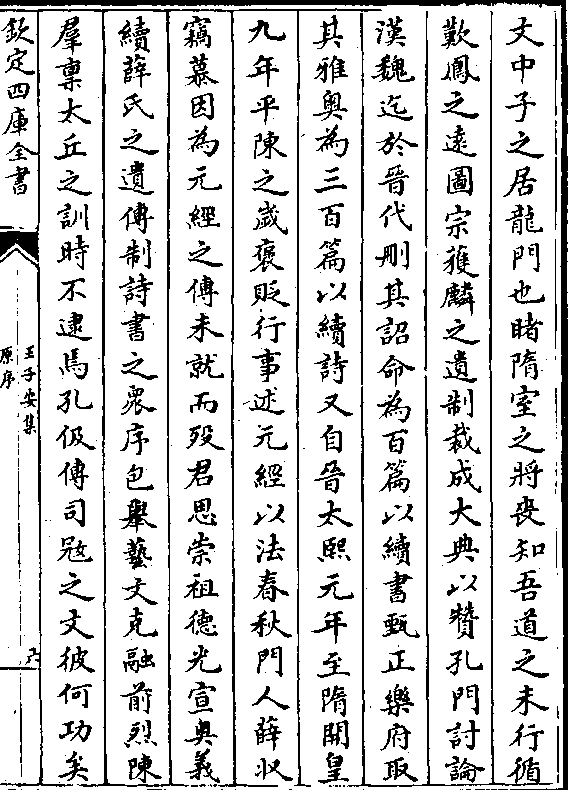 文中子之居龍門也睹隋室之將喪知吾道之未行循
歎鳳之遠圖宗獲麟之遺制裁成大典以贊孔門討論
漢魏迄於晉代刪其詔命為百篇以續書甄正樂府取
其雅奥為三百篇以續詩又自晉太熙元年至隋開皇
九年平陳之歲褒貶行事述元經以法春秋門人薛收
竊慕因為元經之傳未就而歿君思崇祖德光宣奥義
續薛氏之遺傳制詩書之衆序包舉藝文克融前烈陳
羣禀太丘之訓時不逮馬孔伋傳司冦之文彼何功矣
欽定四庫全書
王子安集
原序
六